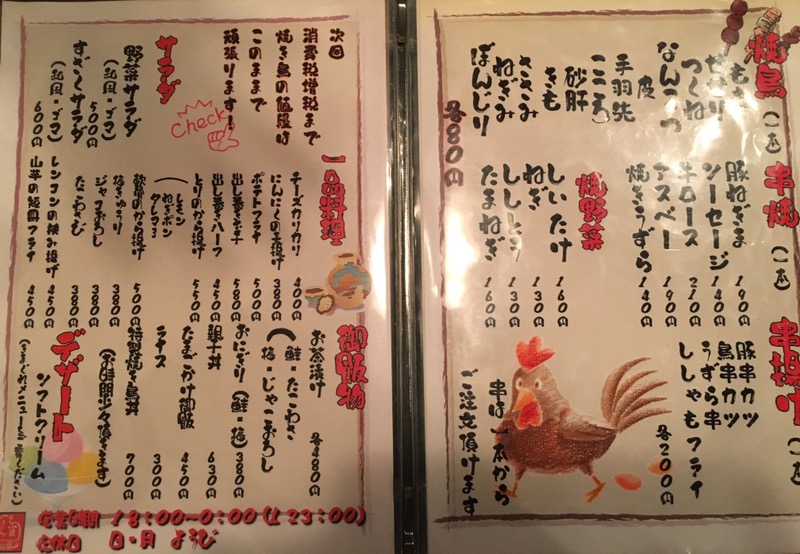 焼鳥(一本)
もも
せせり
つくね
なんこつ
皮
手羽先
こころ
砂肝
きも
ささみ
ねぎみ
ぼんじり
各80円
串焼(一本)
豚ねぎま 190円
ソーセージ 140円
牛ロース 210円
アスペー 190円
焼きうずら 140円
焼野菜
しいたけ 160円
ねぎ 130円
ししとう 130円
たまねぎ 160円
串揚げ(一本)
豚串カツ
鳥串カツ
うずら串
ししゃもフライ
各200円
串は一本から
ご注文頂けます
次回
消費税増税まで
焼き鳥の値段は
このままで
頑張ります!
Check
サラダ
野菜サラダ 500円
(和風・ゴマ)
すぎくサラダ 600円
(和風・ゴマ)
一品料理
チーズカリカリ 400円
にんにくの天揚げ 380円
ポテトフライ 500円
出し巻き玉子 580円
出し巻きハーフ 450円
とりのから揚げ 550円
(レモン
ねぎポン
タレマヨ
軟骨のから揚げ 500円
梅きゅうり 380円
ジャコおろし 380円
たこわさび 380円
レンコンの挟み揚げ 450円
山芋の短冊フライ 450円
御飯物
お茶漬け 各480円
(鮭・たこわさ
梅・じゃこおろし
おにぎり(鮭・梅) 380円
親子丼 630円
たまごかけ御飯 450円
ライス 300円
特製焼き鳥丼 700円
(お時間少々頂きます)
デザート
ソフトクリーム
(きまぐれメニューをご覧ください)
営業時間 18:00~0:00(L23:00)
定休日 日・月ようび